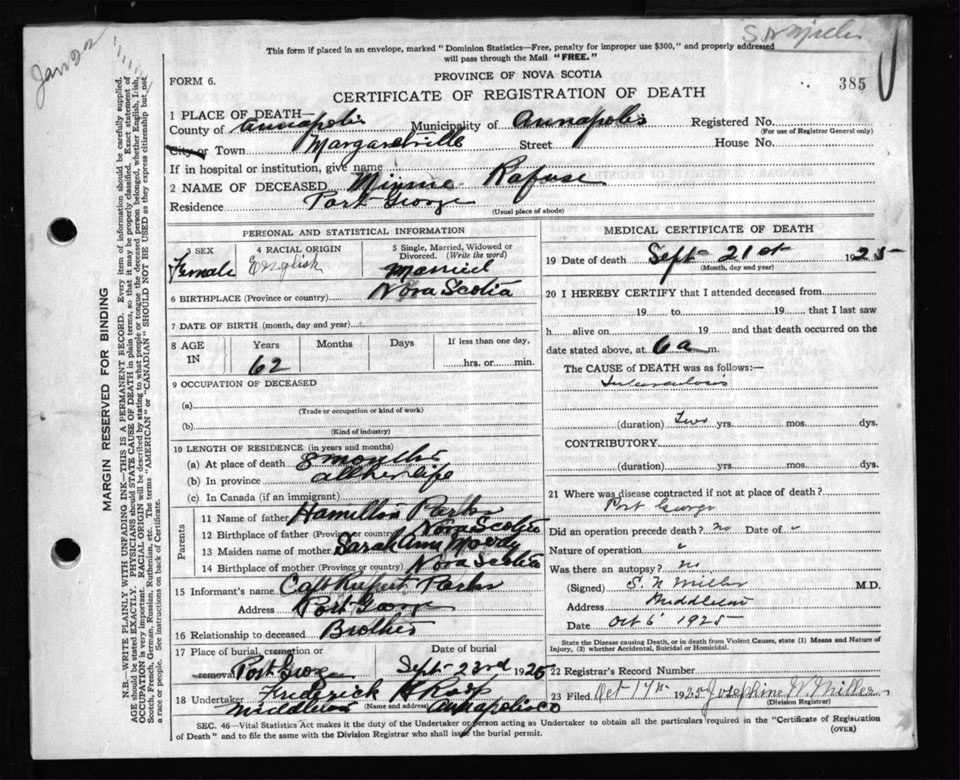 Jan 22
S N Miller
This form if placed in an envelope, marked "Dominion Statistics—Free, penalty for improper use $300," and properly addressed
will pass through the Mail "FREE."
PROVINCE OF NOVA SCOTIA
FORM 6.
CERTIFICATE OF REGISTRATION OF DEATH
385
1 PLACE OF DEATH—
County of Annapolis Municipality of Annapolis Registered No.
(For use of Registrar General only)
City or Town Margaretville Street House No.
If in hospital or institution, give name
2 NAME OF DECEASED Minnie Rafuse
Residence Port George
(Usual place of abode)
PERSONAL AND STATISTICAL INFORMATION
3 SEX Female
4 RACIAL ORIGIN English
5 Single, Married, Widowed or
Divorced. (Write the word)
Married
6 BIRTHPLACE (Province or country) Nova Scotia
7 DATE OF BIRTH (month, day and year)
8 AGE IN Years Months Days If less than one day,
62 hrs. or min.
9 OCCUPATION OF DECEASED
(a)
(Trade or occupation or kind of work)
(b)
(Kind of industry)
10 LENGTH OF RESIDENCE (in years and months)
(a) At place of death 8 months
(b) In province all her life
(c) In Canada (if an immigrant)
Parents
11 Name of father Hamilton Parks
12 Birthplace of father (Province or country) Nova Scotia
13 Maiden name of mother Sarah Ann Moody
14 Birthplace of mother (Province or country) Nova Scotia
15 Informant's name Capt Rupert Parks
Address Port George
16 Relationship to deceased Brother
17 Place of burial, cremation or
removal Port George
Date of burial
Sept 23rd 1925
18 Undertaker Frederick
Middleton (Name and address) Annapolis Co
MEDICAL CERTIFICATE OF DEATH
19 Date of death Sept 21st 1925
(Month, day and year)
20 I HEREBY CERTIFY that I attended deceased from
19 to 19 that I last saw
h alive on 19 and that death occurred on
date stated above, at 6 a m.
The CAUSE of DEATH was as follows:—
Tuberculosis
(duration) Two yrs. mos. dys.
CONTRIBUTORY
(duration) yrs. mos. dys.
21 Where was disease contracted if not at place of death?
Port George
Did an operation precede death? no Date of "
Nature of operation "
Was there an autopsy? no
(Signed) S. N Miller M.D.
Address Middleton
Date Oct 6 1925
State the Disease causing Death, or in death from Violent Causes, state (1) Means and Nature of
Injury, (2) whether Accidental, Suicidal or Homicidal.
22 Registrar's Record Number
23 Filed Oct 1925 Josephine W. Miller
(Division Registrar)
SEC. 46—Vital Statistics Act makes it the duty of the Undertaker or person acting as Undertaker to obtain all the particulars required in the "Certificate of Registration
of Death" and to file the same with the Division Registrar who shall issue the burial permit.
(OVER)
MARGIN RESERVED FOR BINDING
N.B.—WRITE PLAINLY WITH UNFADING INK—THIS IS A PERMANENT RECORD. Every item of information should be carefully supplied.
AGE should be stated EXACTLY. PHYSICIANS should STATE CAUSE OF DEATH in plain terms, so that it may be properly classified. Exact statement of
OCCUPATION is very important. RACIAL ORIGIN will be described by stating to what people or tongue the deceased person belonged, whether English, Irish,
Scotch, French, German, Russian, Ruthenian, etc. The terms "AMERICAN" or "CANADIAN" SHOULD NOT BE USED as they express citizenship but not
a race or people. See instructions on back of Certificate.